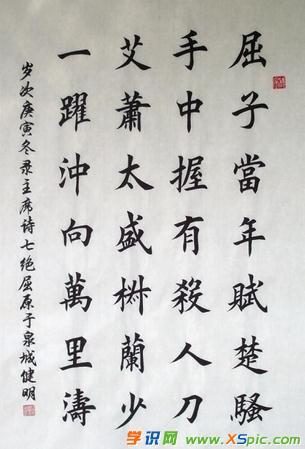 屈子當年賦楚騷
手中握有殺人刀
艾蕭太盛椒蘭少
一躍沖向萬里濤
岁次庚寅冬录主席诗七绝屈原于泉城健明
学识网 www.XSpic.com